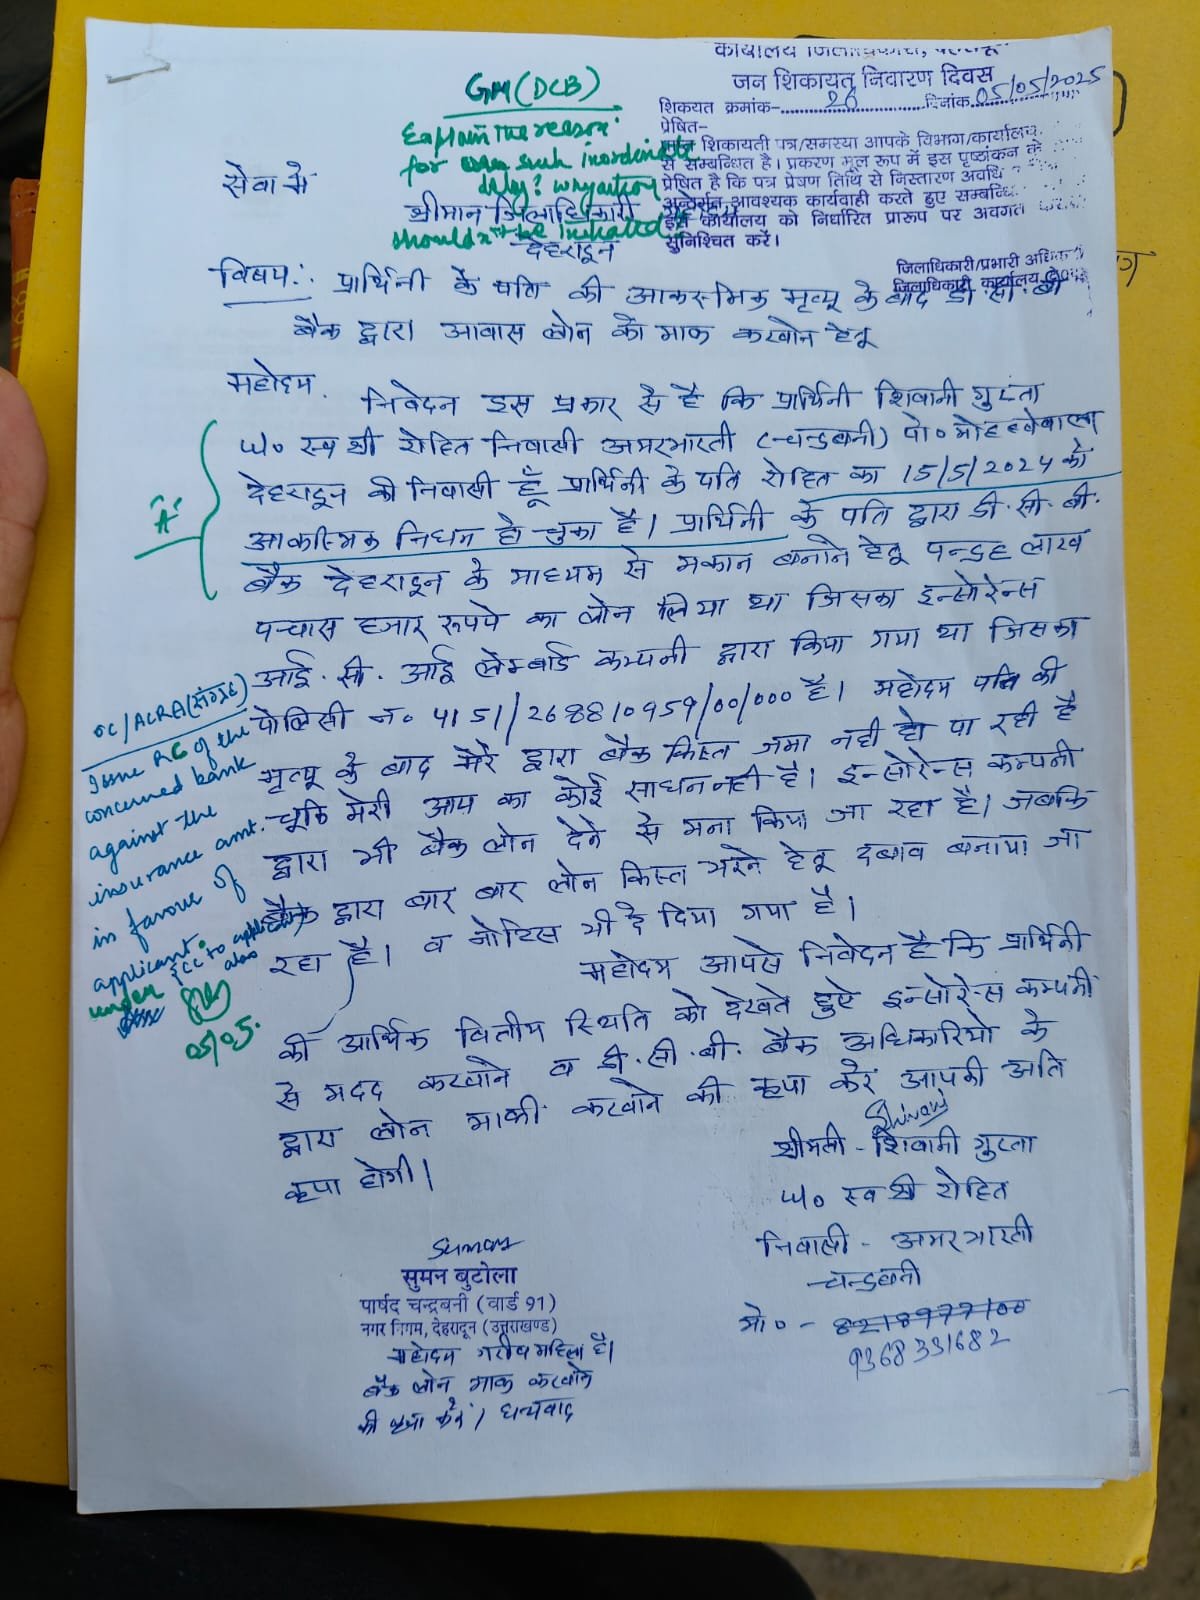 जन शिकायत निवारण दिवस
शिकयत क्रमांक-..........26..........दिनांक 05/05/2025
प्रेषित-
शिकायती पत्र/समस्या आपके विभाग/कार्यालय
से सम्बन्धित है। प्रकरण मूल रूप में इस पृष्ठांकन के
प्रेषित है कि पत्र प्रेषण तिथि से निस्तारण अवधि
अन्तर्गत आवश्यक कार्यवाही करते हुए सम्बन्धि
इस कार्यालय को निर्धारित प्रारूप पर अवगत
सुनिश्चित करें।
जिलाधिकारी/प्रभारी अधिका
जिलाधिकारी कार्यालय
GM (DCB)
Explain the reason
for such inordinate
delay? why action
shouldn't be initiated
सेवा मे
श्रीमान जिलाधिकारी
देहरादून
विषय:- प्रार्थिनी के पति की आकस्मिक मृत्यू के बाद डी सी बी
बैंक द्वारा आवास लोन को माफ करवाने हेतू
महोदय.
निवेदन इस प्रकार से है कि प्रार्थिनी शिवानी गुप्ता
w/o स्व श्री रोहित निवासी अमरभारती (चन्द्रबनी) पो०
देहरादून की निवासी हूँ प्रार्थिनी के पति रोहित का 15/5/2024 को
आकस्मिक निधन हो चुका है। प्रार्थिनी के पति द्वारा डी.सी.बी.
बैंक देहरादून के माध्यम से मकान बनाने हेतू पन्द्रह लाख
पच्चास हजार रूपये का लोन लिया था जिसका इन्सोरेन्स
आई. सी. आई लोम्बार्ड कम्पनी द्वारा किया गया था जिसका
पोलिसी न० 4151/268810959/00/000 है। महोदय पति की
मृत्यू के बाद मेरे द्वारा बैंक किस्त जमा नही हो पा रही है
चूकि मेरी आय का कोई साधन नही है। इन्सोरेन्स कम्पनी
द्वारा भी बैंक लोन देने से मना किया जा रहा है। जबकि
बैंक द्वारा बार बार लोन किस्त भरने हेतू दबाव बनाया जा
रहा है। व नोटिस भी दे दिया गया है।
महोदय आपसे निवेदन है कि प्रार्थिनी
की आर्थिक वित्तीय स्थिति को देखते हुऐ इन्सोरेन्स कम्पनी
से मदद करवाने व डी.सी.बी. बैंक अधिकारियो के
द्वारा लोन माफी करवाने की कृपा करें आपकी अति
कृपा होगी।
"A"
OC/ACRA(संग्रह)
Issue RC of the
concerned bank
against the
insurance amt.
in favour of
applicant
under
CC to applicant
also
05/05.
Shivani
श्रीमती - शिवानी गुप्ता
w/o स्व श्री रोहित
निवासी - अमरभारती
चन्द्रबनी
मो० - 8218977100
9368331682
Suman
सुमन बुटोला
पार्षद चन्द्रबनी (वार्ड 91)
नगर निगम, देहरादून (उत्तराखण्ड)
महोदय गरीब महिला है।
बैंक लोन माफ करवाने
की कृपा करें। धन्यवाद